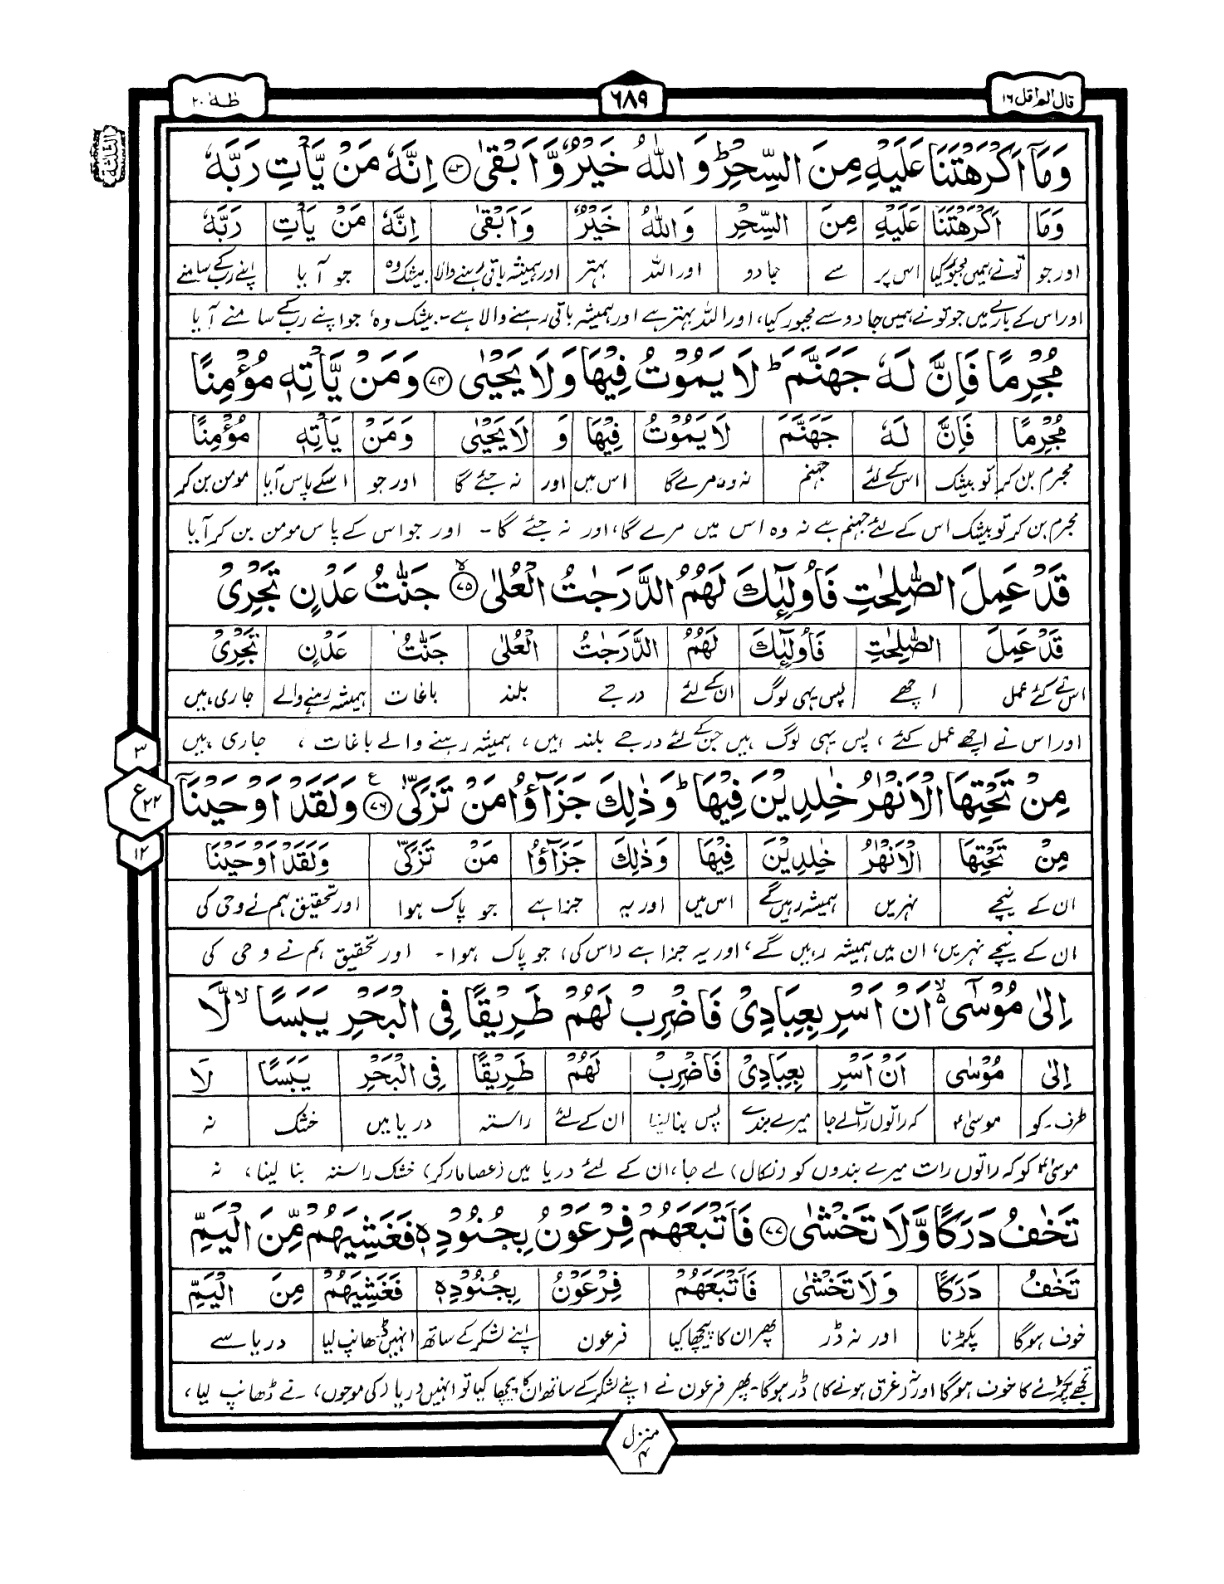 قال الم اقل ١٦
٦٨٩
طٰهٰ ٢٠
الثلثة
وَمَآ اَكْرَهْتَنَا عَلَيْهِ مِنَ السِّحْرِ ؕ وَاللّٰهُ خَيْرٌ وَّاَبْقٰى ﴿۷۳﴾ اِنَّهٗ مَنْ يَّاْتِ رَبَّهٗ
وَمَا اَكْرَهْتَنَا عَلَيْهِ مِنَ السِّحْرِ وَاللّٰهُ خَيْرٌ وَاَبْقٰى اِنَّهٗ مَنْ يَاْتِ رَبَّهٗ
اور جو تونے ہمیں مجبور کیا اس پر سے جادو اور اللہ بہتر اور ہمیشہ باقی رہنے والا بیشک وہ جو آیا اپنے رب کے سامنے
اور اس کے بارے میں جو تونے ہمیں جادو سے مجبور کیا، اور اللہ بہتر ہے اور ہمیشہ باقی رہنے والا ہے۔ بیشک وہ جو اپنے رب کے سامنے آیا
مُجْرِمًا فَاِنَّ لَهٗ جَهَنَّمَ ؕ لَا يَمُوْتُ فِيْهَا وَلَا يَحْيٰى ﴿۷۴﴾ وَمَنْ يَّاْتِهٖ مُؤْمِنًا
مُجْرِمًا فَاِنَّ لَهٗ جَهَنَّمَ لَا يَمُوْتُ فِيْهَا وَ لَا يَحْيٰى وَمَنْ يَاْتِهٖ مُؤْمِنًا
مجرم بن کر تو بیشک اس کے لئے جہنم نہ وہ مرے گا اس میں اور نہ جئے گا اور جو اسکے پاس آیا مومن بن کر
مجرم بن کر تو بیشک اس کے لئے جہنم ہے نہ وہ اس میں مرے گا، اور نہ جئے گا ۔ اور جو اس کے پاس مومن بن کر آیا
قَدْ عَمِلَ الصّٰلِحٰتِ فَاُولٰٓئِكَ لَهُمُ الدَّرَجٰتُ الْعُلٰى ﴿۷۵﴾ جَنّٰتُ عَدْنٍ تَجْرِىْ
قَدْ عَمِلَ الصّٰلِحٰتِ فَاُولٰٓئِكَ لَهُمُ الدَّرَجٰتُ الْعُلٰى جَنّٰتُ عَدْنٍ تَجْرِىْ
اس نے کئے عمل اچھے پس یہی لوگ ان کے لئے درجے بلند باغات ہمیشہ رہنے والے جاری ہیں
اور اس نے اچھے عمل کئے ، پس یہی لوگ ہیں جن کے لئے درجے بلند ہیں ، ہمیشہ رہنے والے باغات ، جاری ہیں
٣
ع ٢٢
١٢
مِنْ تَحْتِهَا الْاَنْهٰرُ خٰلِدِيْنَ فِيْهَا ؕ وَذٰلِكَ جَزٰٓؤُا مَنْ تَزَكّٰى ﴿۷۶﴾ وَلَقَدْ اَوْحَيْنَآ
مِنْ تَحْتِهَا الْاَنْهٰرُ خٰلِدِيْنَ فِيْهَا وَذٰلِكَ جَزٰٓؤُا مَنْ تَزَكّٰى وَلَقَدْ اَوْحَيْنَا
ان کے نیچے نہریں ہمیشہ رہیں گے اس میں اور یہ جزا ہے جو پاک ہوا اور تحقیق ہم نے وحی کی
ان کے نیچے نہریں، ان میں ہمیشہ رہیں گے، اور یہ جزا ہے (اس کی) جو پاک ہوا ۔ اور تحقیق ہم نے وحی کی
اِلٰى مُوْسٰٓى ۙ اَنْ اَسْرِ بِعِبَادِىْ فَاضْرِبْ لَهُمْ طَرِيْقًا فِى الْبَحْرِ يَبَسًا ۙ لَّا
اِلٰى مُوْسٰى اَنْ اَسْرِ بِعِبَادِىْ فَاضْرِبْ لَهُمْ طَرِيْقًا فِى الْبَحْرِ يَبَسًا لَا
طرف۔ کو موسیٰؑ کہ راتوں رات لے جا میرے بندے پس بنا لینا ان کے لئے راستہ دریا میں خشک نہ
موسیٰؑ کو کہ راتوں رات میرے بندوں کو (نکال) لے جا، ان کے لئے دریا میں (عصا مار کر) خشک راستہ بنا لینا ، نہ
تَخٰفُ دَرَكًا وَّلَا تَخْشٰى ﴿۷۷﴾ فَاَتْبَعَهُمْ فِرْعَوْنُ بِجُنُوْدِهٖ فَغَشِيَهُمْ مِّنَ الْيَمِّ
تَخٰفُ دَرَكًا وَلَا تَخْشٰى فَاَتْبَعَهُمْ فِرْعَوْنُ بِجُنُوْدِهٖ فَغَشِيَهُمْ مِنَ الْيَمِّ
خوف ہوگا پکڑنا اور نہ ڈر پھر ان کا پیچھا کیا فرعون اپنے لشکر کے ساتھ انہیں ڈھانپ لیا دریا سے
تجھے پکڑنے کا خوف ہوگا اور نہ (غرق ہونے کا) ڈر ہوگا۔ پھر فرعون نے اپنے لشکر کے ساتھ ان کا پیچھا کیا تو انہیں دریا (کی موجوں) نے ڈھانپ لیا ،
منزل ٤